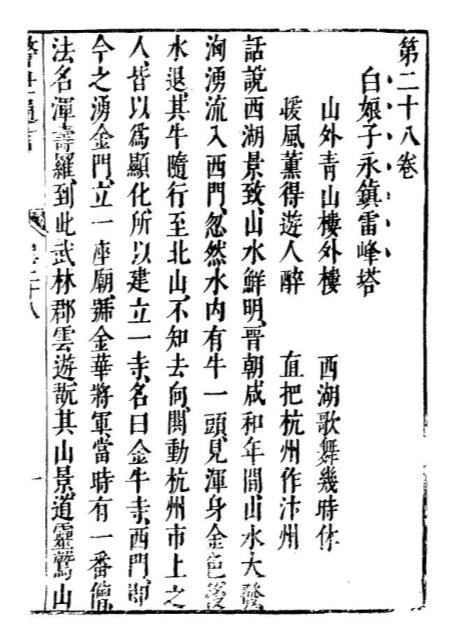 第二十八卷
白娘子永鎮雷峰塔
山外青山樓外樓　西湖歌舞幾時休
暖風薰得遊人醉　直把杭州作汴州
話說西湖景致、山水鮮明、晉朝咸和年間、山水大發
洶湧流入西門、忽然水内有牛一頭、見渾身金色、後
水退、其牛隨行至北山、不知去向、鬨動杭州市上之
人、皆以爲顯化、所以建立一寺、名曰金牛寺、西門、卽
今之湧金門、立一座廟、號金華將軍、當時有一番僧
法名渾壽羅、到此武林郡雲遊、翫其山景、道靈鷲山
卷二十八
一